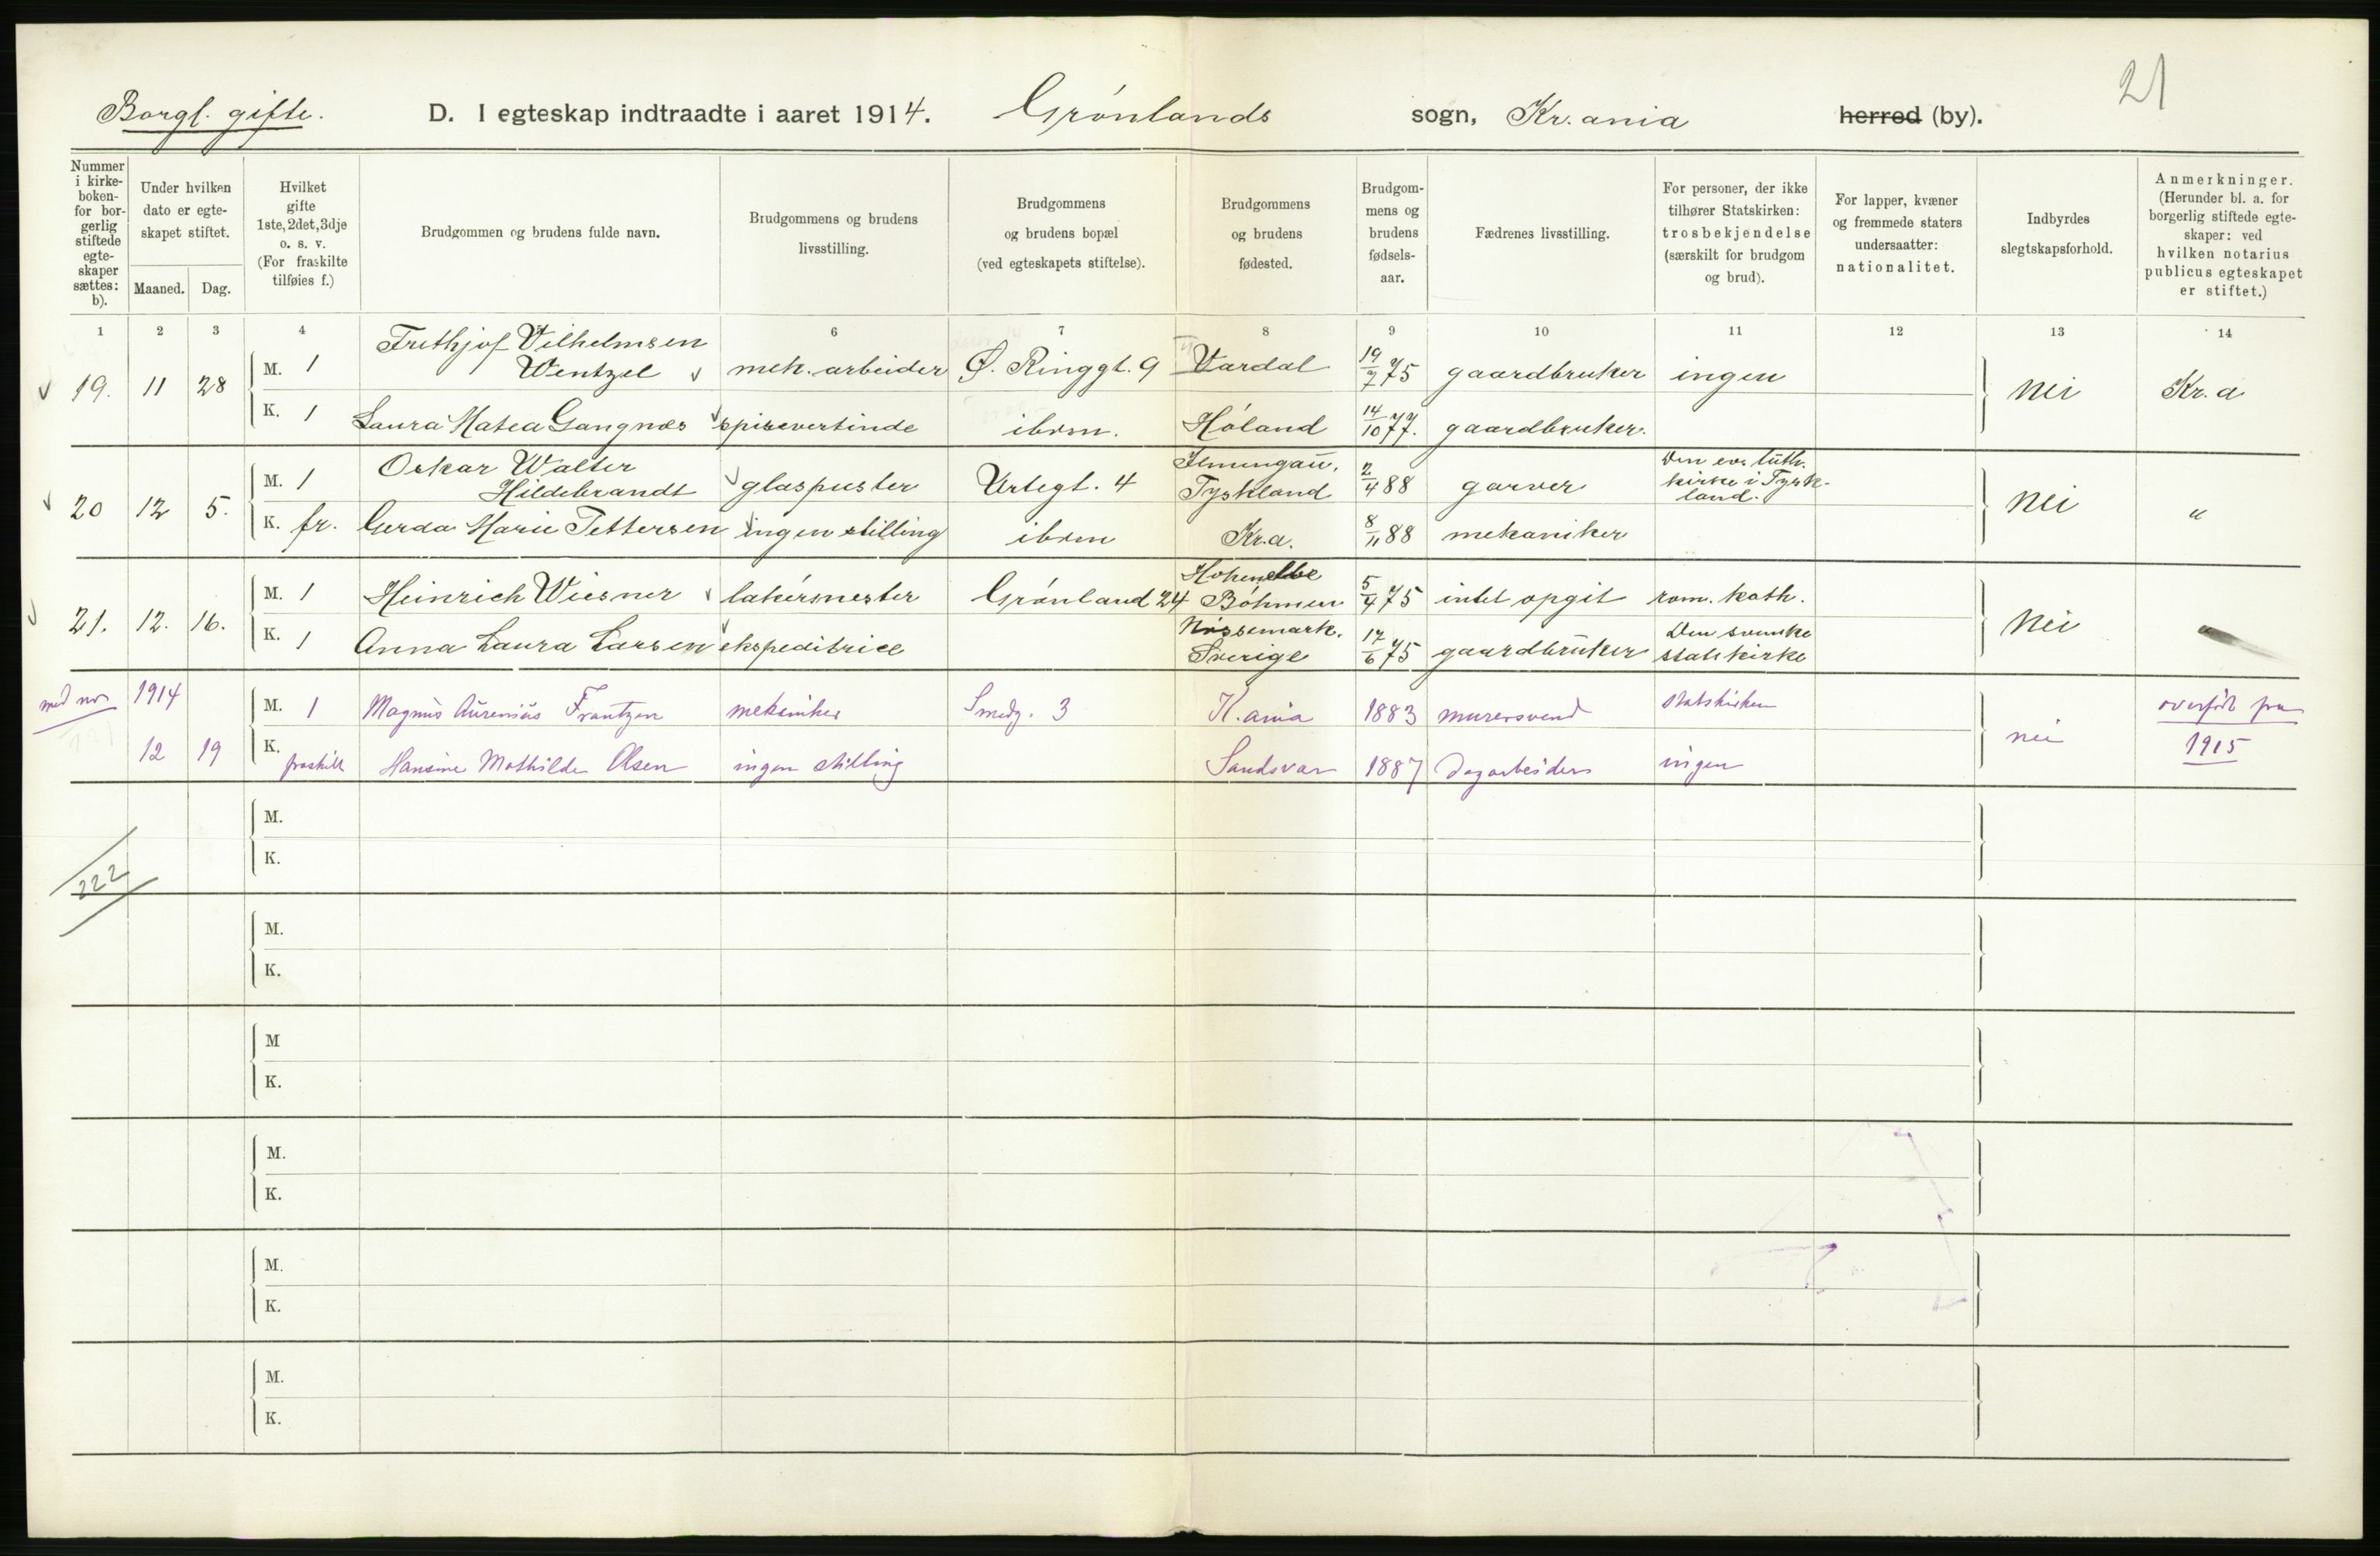 Borgl. gifte.
D. I egteskap indtraadte i aaret 1914. Grønlands sogn, Kr.ania herred (by).
21
Nummer i kirke-boken- for bor-gerlig stiftede egte-skaper sættes: b).
Under hvilken dato er egte-skapet stiftet.
Maaned. Dag.
Hvilket gifte 1ste, 2det, 3dje o. s. v. (For fraskilte tilføies f.)
Brudgommen og brudens fulde navn.
Brudgommens og brudens livsstilling.
Brudgommens og brudens bopæl (ved egteskapets stiftelse).
Brudgommens og brudens fødested.
Brudgom-mens og brudens fødsels-aar.
Fædrenes livsstilling.
For personer, der ikke tilhører Statskirken: trosbekjendelse (særskilt for brudgom og brud).
For lapper, kvæner og fremmede staters undersaatter: nationalitet.
Indbyrdes slegtskapsforhold.
Anmerkninger. (Herunder bl. a. for borgerlig stiftede egte-skaper: ved hvilken notarius publicus egteskapet er stiftet.)
1 2 3 4 5 6 7 8 9 10 11 12 13 14
19. 11 28 M. 1 Frithjof Vilhelmsen Wentzel mek. arbeider Ø. Ringgt. 9 Vardal 19/7 75 gaardbruker ingen nei Kr.a
K. 1 Laura Matea Gangnæs spisevertinde ibdm. Høland 14/10 77. gaardbruker.
20 12 5. M. 1 Oskar Walter Hildebrandt glaspuster Urtegt. 4 Tyskland 2/4 88 garver Den ev. luth. kirke i Tyskland. nei "
K. fr. Gerda Marie Pettersen ingen stilling ibdm Kr.a. 8/11 88 mekaniker
21. 12. 16. M. 1 Heinrich Wiesner lakérmester Grønland 24 Hohenelbe Böhmen 5/4 75 intet opgit rom. kath. nei "
K. 1 Anna Laura Larsen ekspeditrice Nössemark. Sverige 17/6 75 gaardbruker Den svenske statskirke
med nr 1914 M. 1 Magnus Aurenius Frantzen mekaniker Smedg. 3 K.ania 1883 murersvend statskirken nei overført fra 1915
12 19 K. fraskilt Hansine Mathilde Olsen ingen stilling Sandsvær 1887 Dagarbeider ingen
M.
K.
222
M.
K.
M
K.
M.
K.
M.
K.
M.
K.